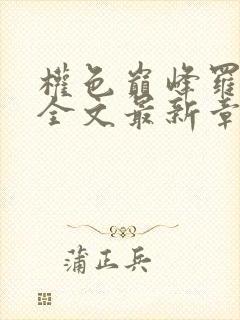 權色巔峰羅
全文最新章
蒲正兵